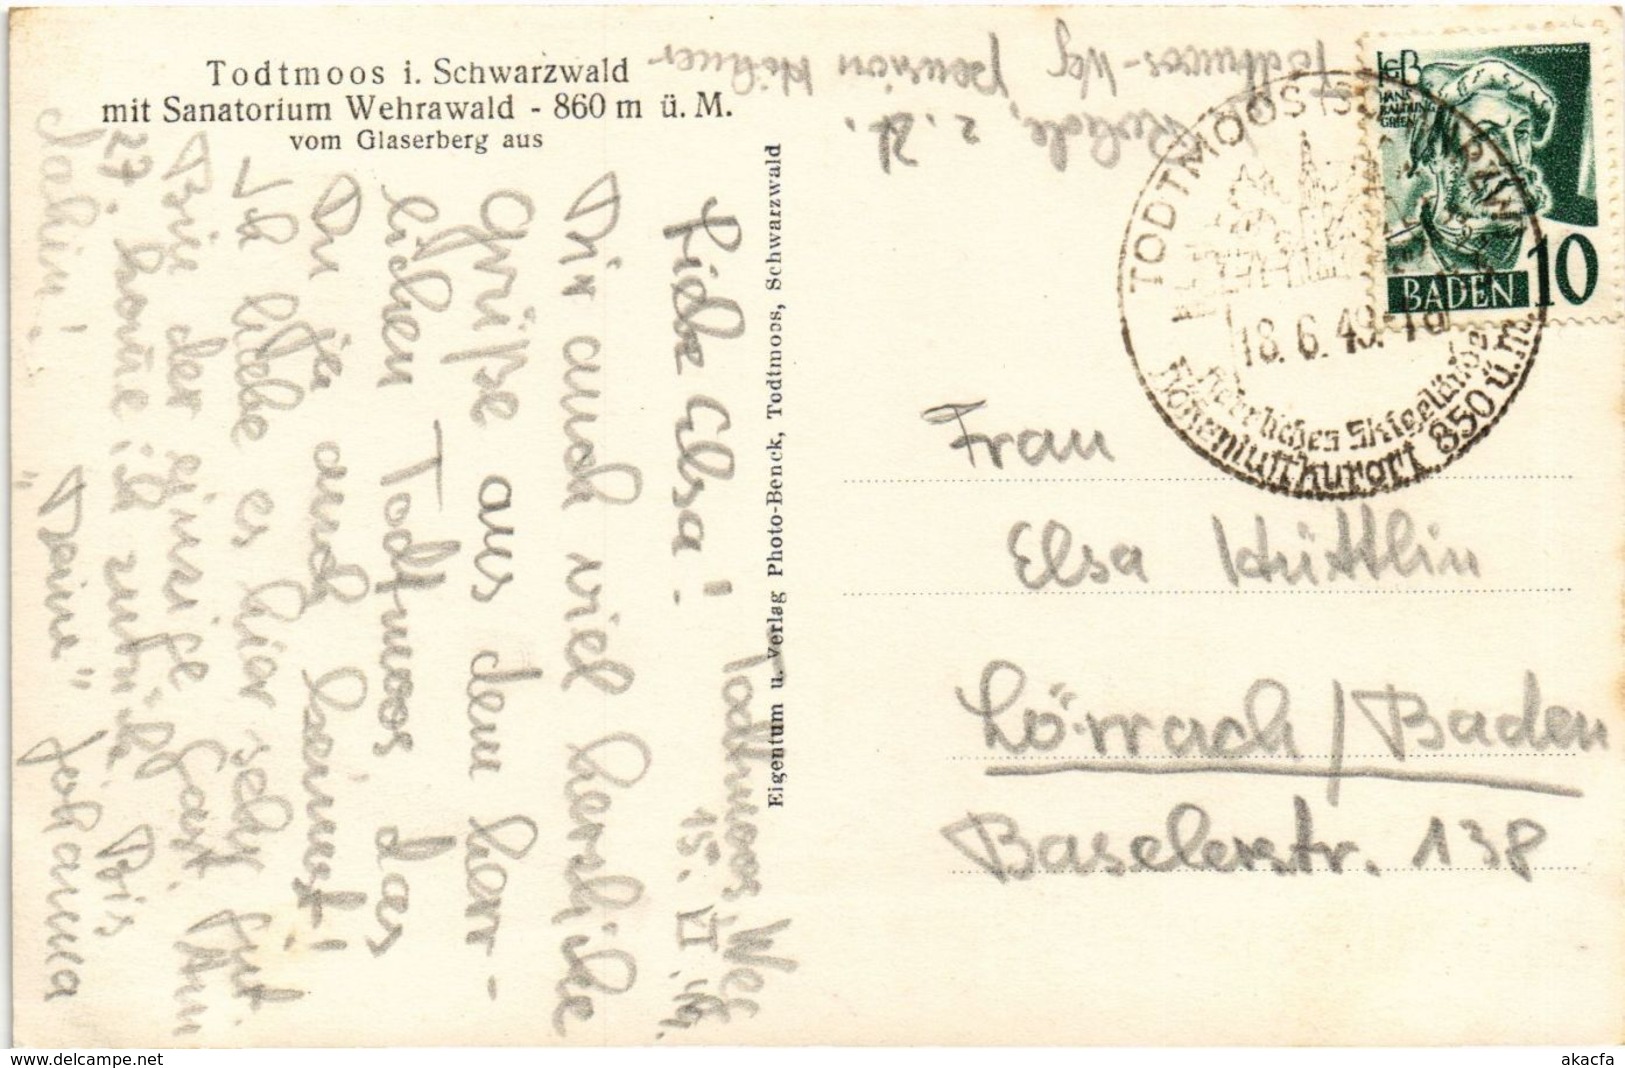 Todtmoos i. Schwarzwald
mit Sanatorium Wehrawald - 860 m ü. M.
vom Glaserberg aus
Todtmoos-Weg
15. VI. 49.
Liebe Elsa!
Dir auch viel herzliche
Grüße aus dem herr-
lichen Todtmoos, das
Du ja auch kennst!
Ich lebe es hier sehr gut.
Bin der einzige Gast. Am
27. komme ich zurück. Bis
dahin!
"Deine" Johanna
Eigentum u. Verlag Photo-Benck, Todtmoos, Schwarzwald
z. Zt.
Todtmoos-Weg Pension
TODTMOOS (SCHWARZW.)
18.6.49.-10
Herrliches Skigelände
Höhenluftkurort 850 ü.m.
V.K. JONYNAS
HANS
BALDUNG
GRIEN
BADEN 10
Frau
Elsa Hüttlin
Lörrach/Baden
Baselerstr. 138
www.delcampe.net
akacfa